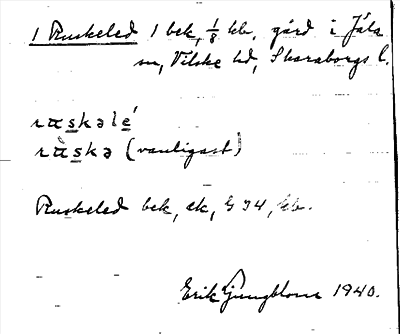 1 Ruskeled 1 bek, 1/8 kb, gård i Jäla
sn, Vilske hd, Skaraborgs l.
ruskəle´
rùskə (vanligast)
Ruskeled bek, ek, G 34, kb.
Erik Ljungblom 1940.